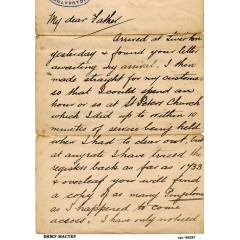 WOLVERTON
My dear Father
Arrived at Tiverton
yesterday & found your letter
awaiting my arrival. I then
made straight for my customers
so that I could spend an
hour or so at St Peters Church
which I did up to within 10
minutes of service being held
when I had to clear out, but
at any rate I have traced the
registers back as far as 1733
& overleaf you will find
a copy of as many Templers
as I happened to come
across. I have only noticed